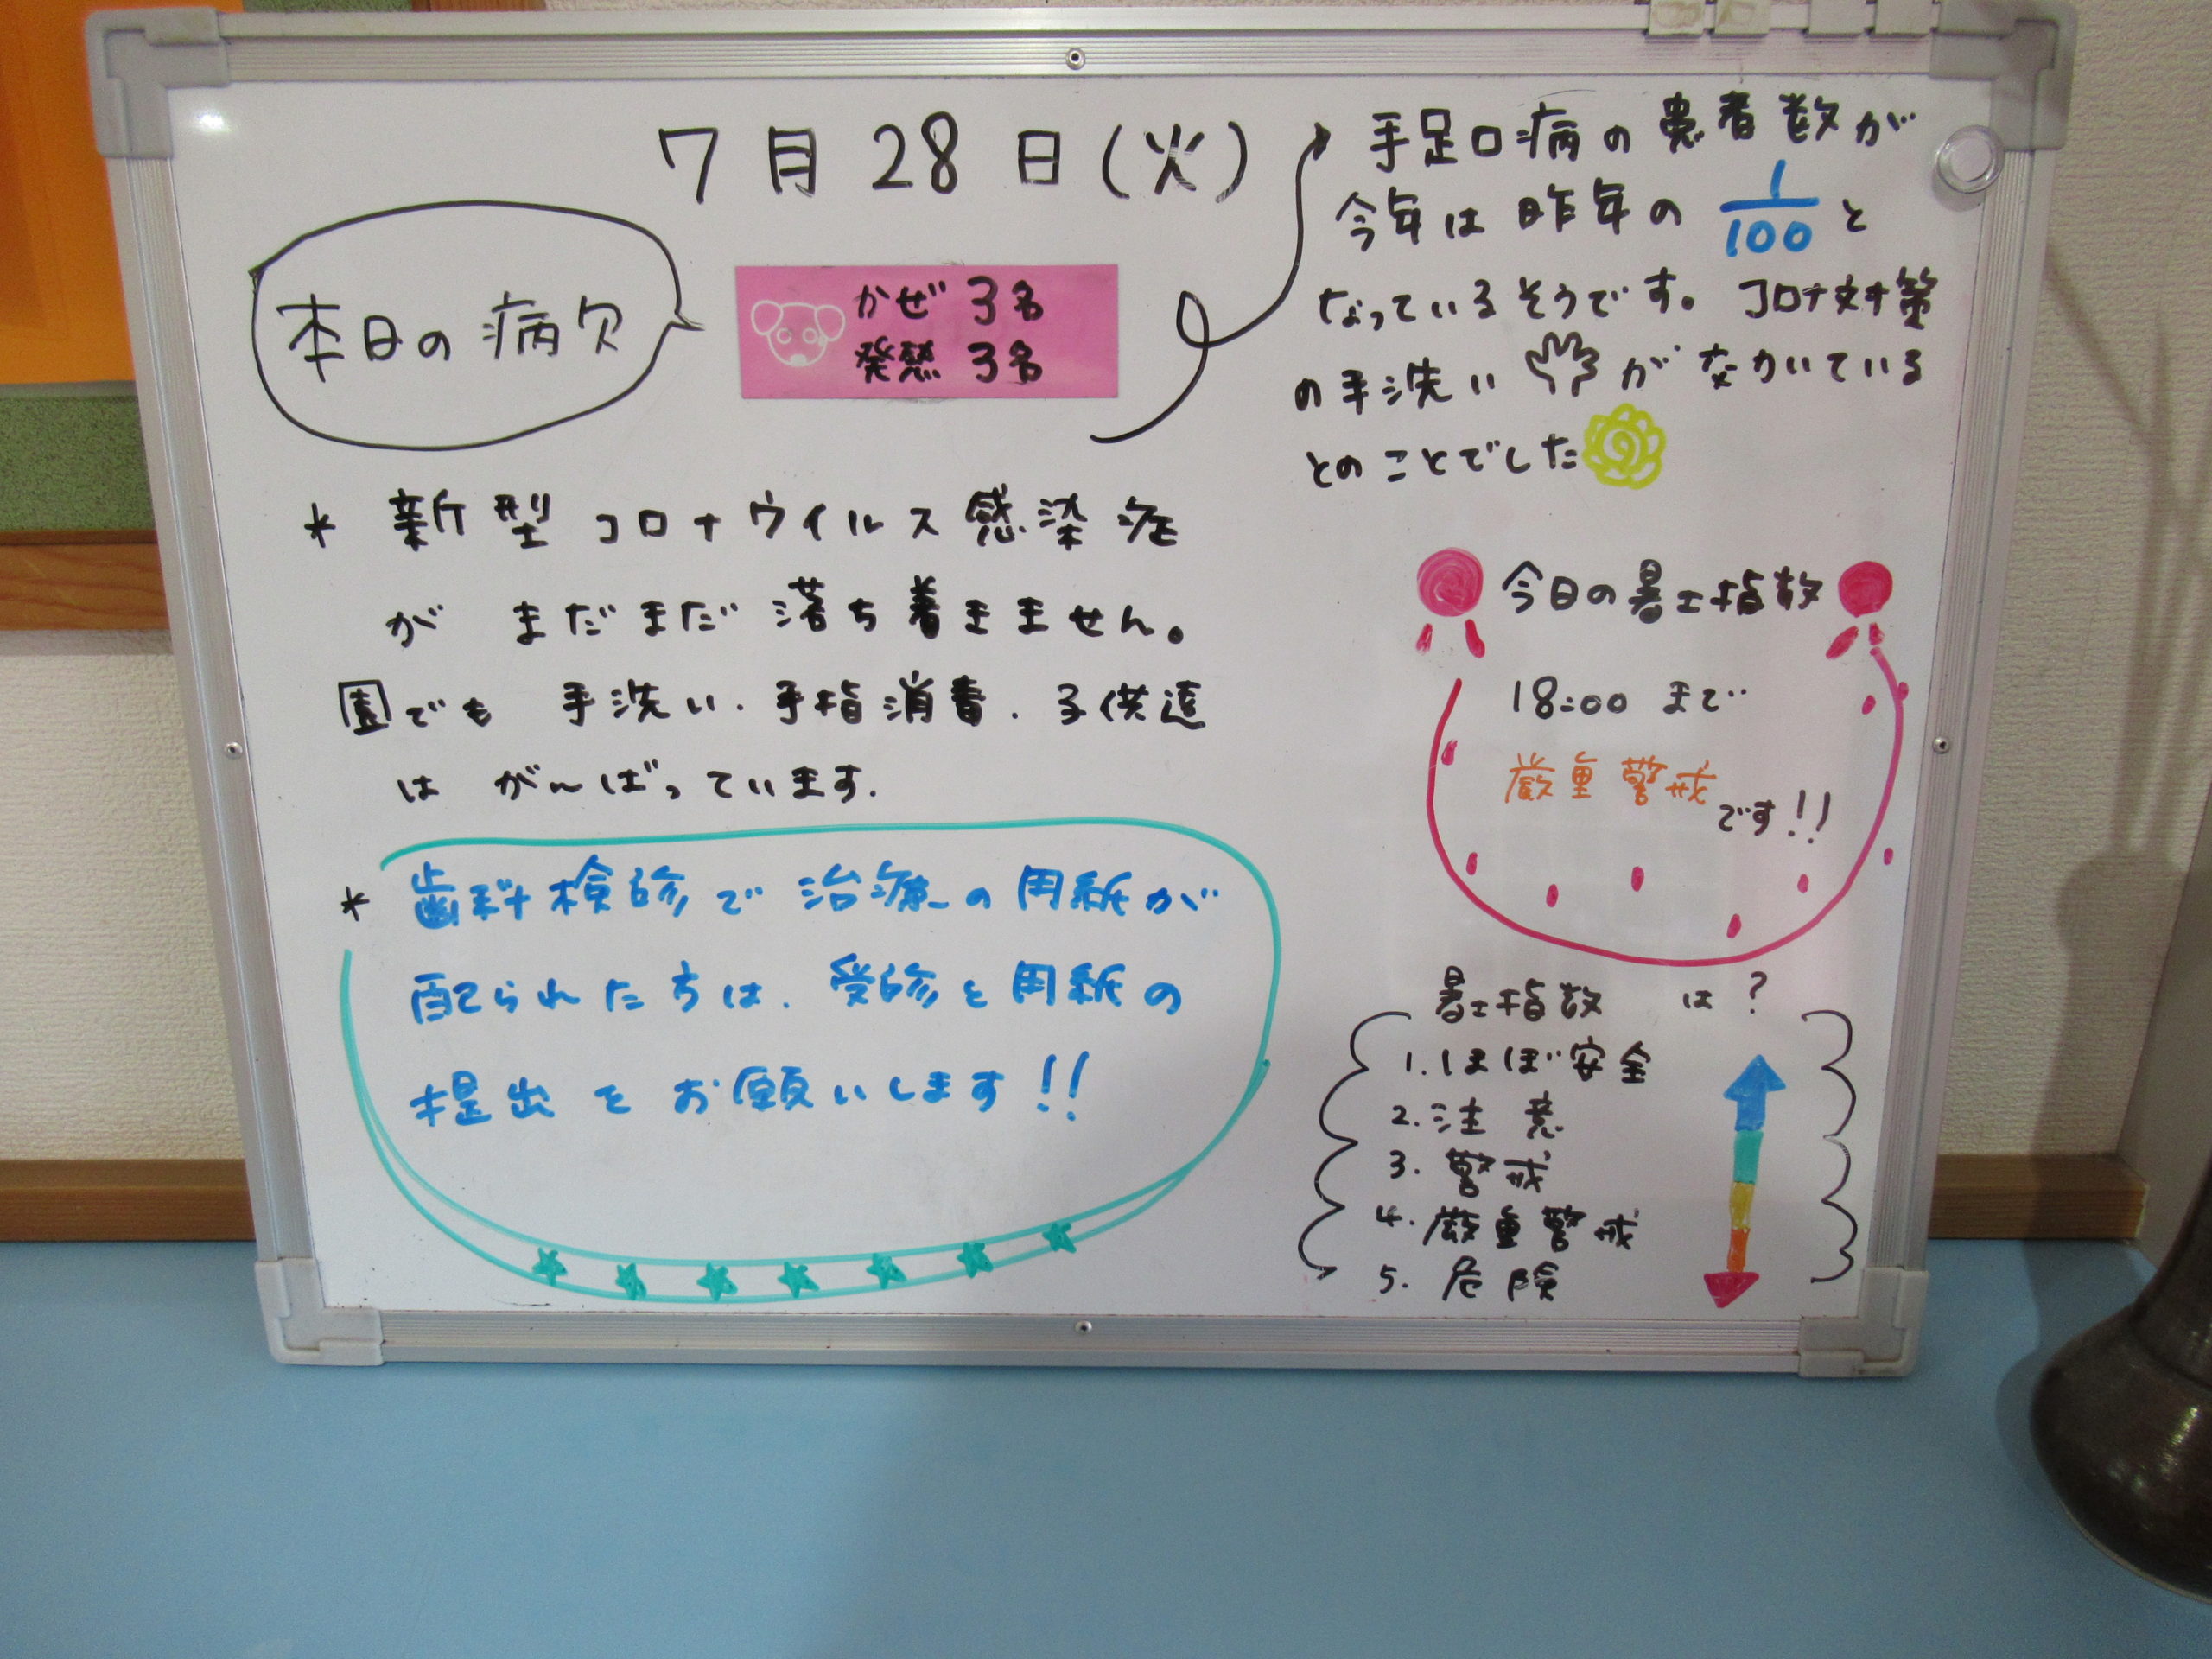 7月28日(火)
本日の病欠
かぜ 3名
発熱 3名
* 新型コロナウイルス感染症
が まだまだ 落ち着きません。
園でも 手洗い.手指消毒.子供達
は がんばっています.
手足口病の患者数が
今年は昨年の 1/100 と
なっているそうです。コロナ対策
の手洗い が なかいている
とのことでした
* 歯科検診で治療の用紙が
配られた方は.受診と用紙の
提出をお願いします!!
今日の暑さ指数
18:00 まで
厳重警戒です!!
暑さ指数 は?
1.ほぼ安全
2.注意
3.警戒
4.厳重警戒
5.危険